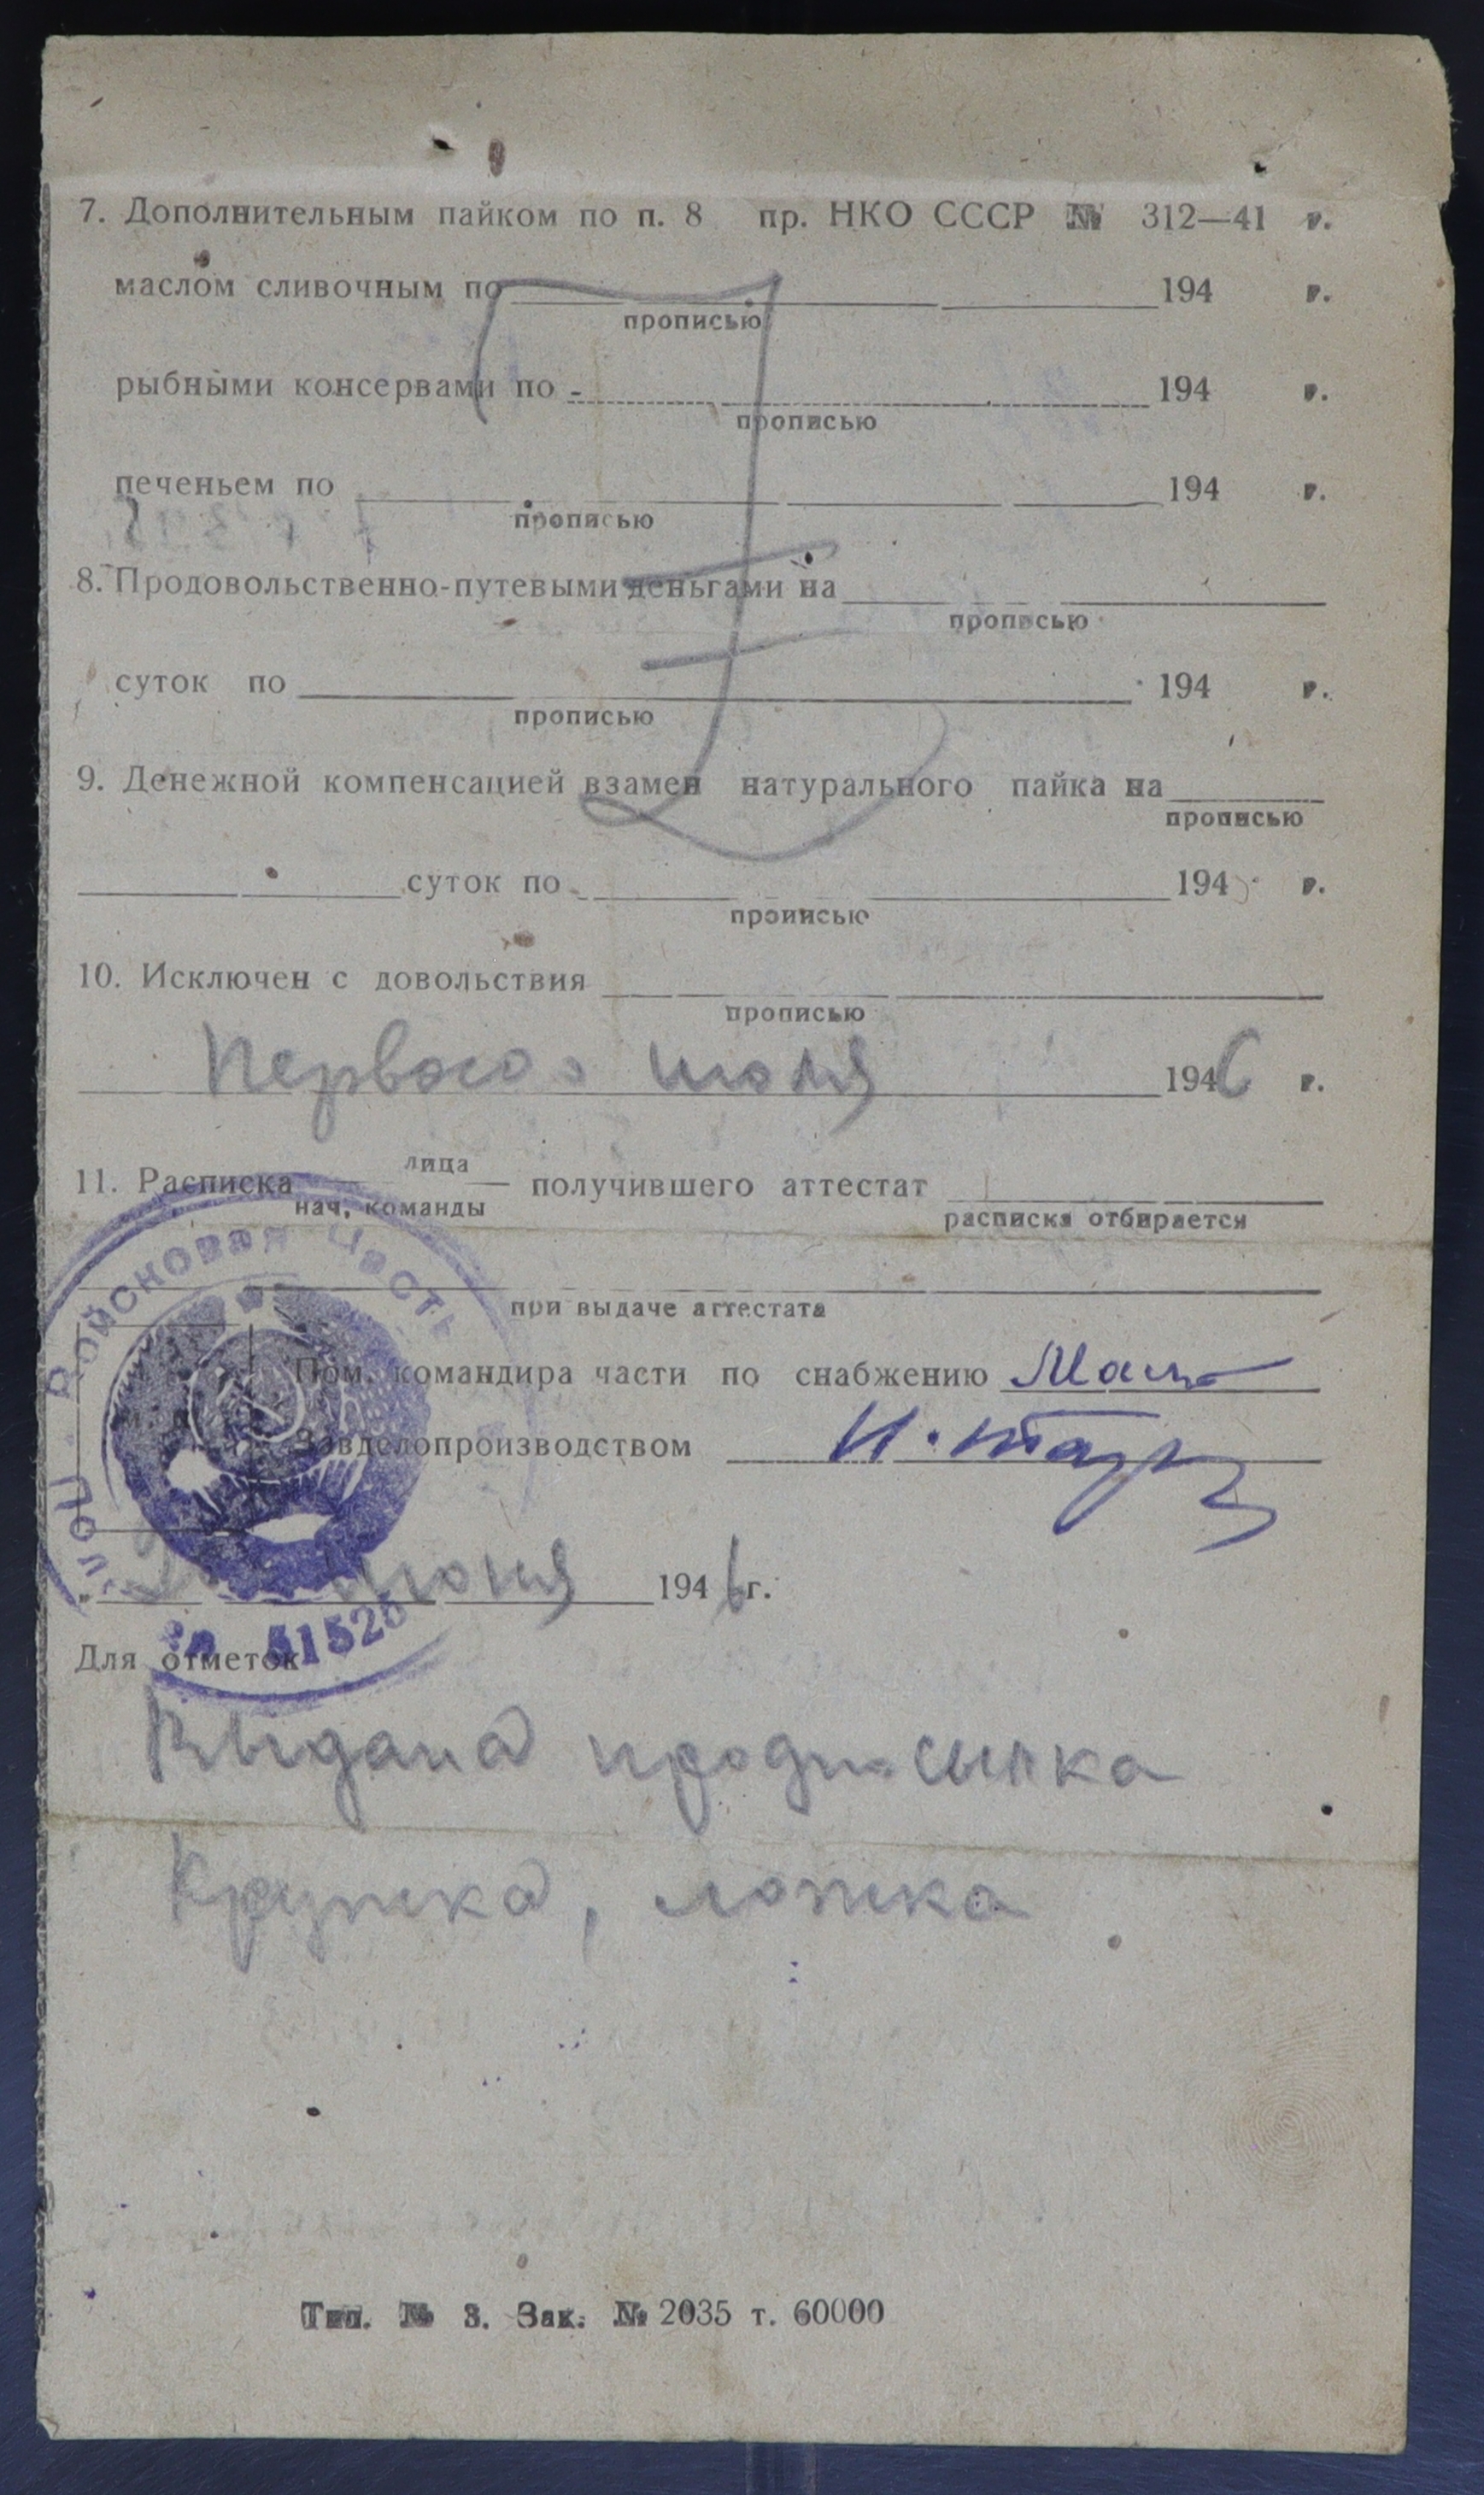 7. Дополнительным пайком по п. 8 пр. НКО СССР № 312—41 г.
маслом сливочным по 194 г.
прописью
рыбными консервами по 194 г.
прописью
печеньем по 194 г.
прописью
8. Продовольственно-путевыми деньгами на
прописью
суток по 194 г.
прописью
9. Денежной компенсацией взамен натурального пайка на
прописью
суток по 194 г.
прописью
10. Исключен с довольствия
прописью
Первого июля 1946 г.
11. Расписка лица
нач. команды
получившего аттестат
расписка отбирается
при выдаче аттестата
Войсковая часть
Пом. командира части по снабжению
м. п.
Завделопроизводством
июня 1946 г.
51526
Для отметок
Выдана
Кружка, ложка
Тип. № 3. Зак. № 2035 т. 60000